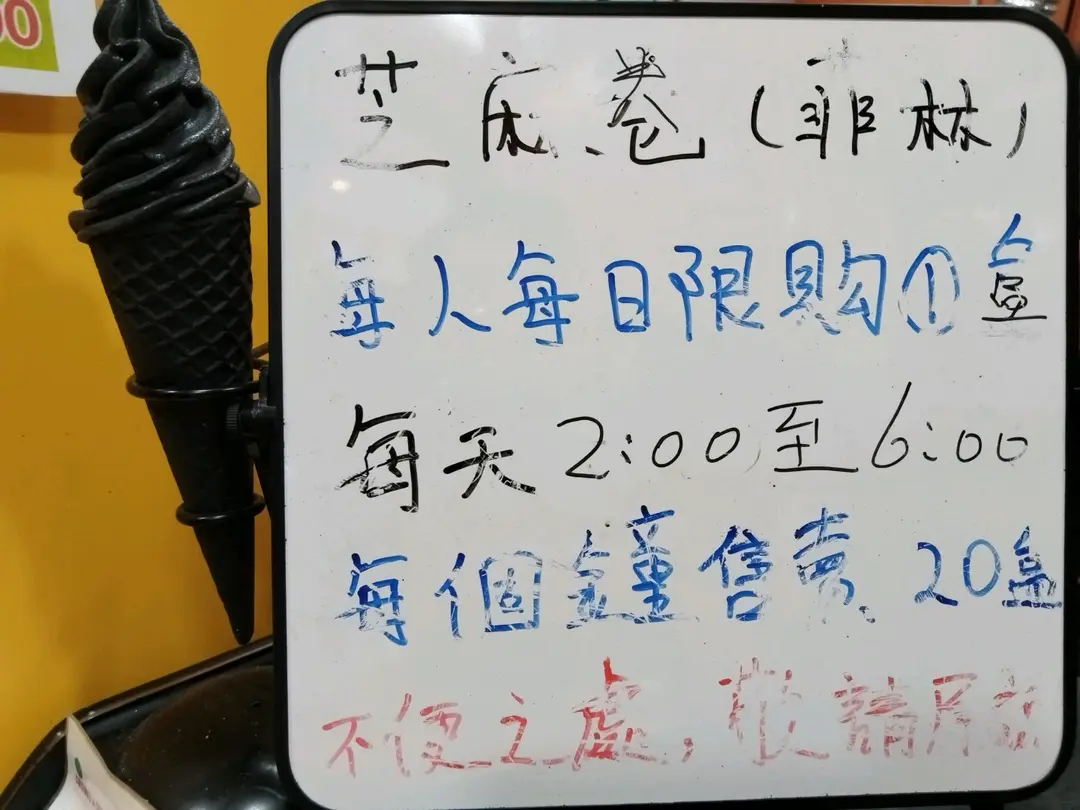 芝麻卷(菲林)
每人每日限购①盒
每天2:00至6:00
每個鐘售賣20盒
不便之處,敬請